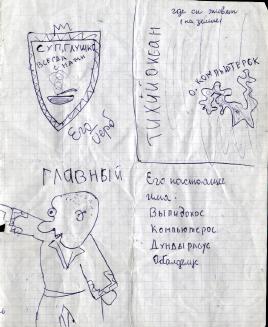 СУП, ГЛУШКО
ВСЕГДА
С НАМИ
Его герб
где он живёт
(на земле)
ТИХИЙ ОКЕАН
О. КОМПЬЮТЕРОК
ГЛАВНЫЙ
Его настоящие
имя:
Выпидокос
Компьютерос
Дундырлус
Обалдеус